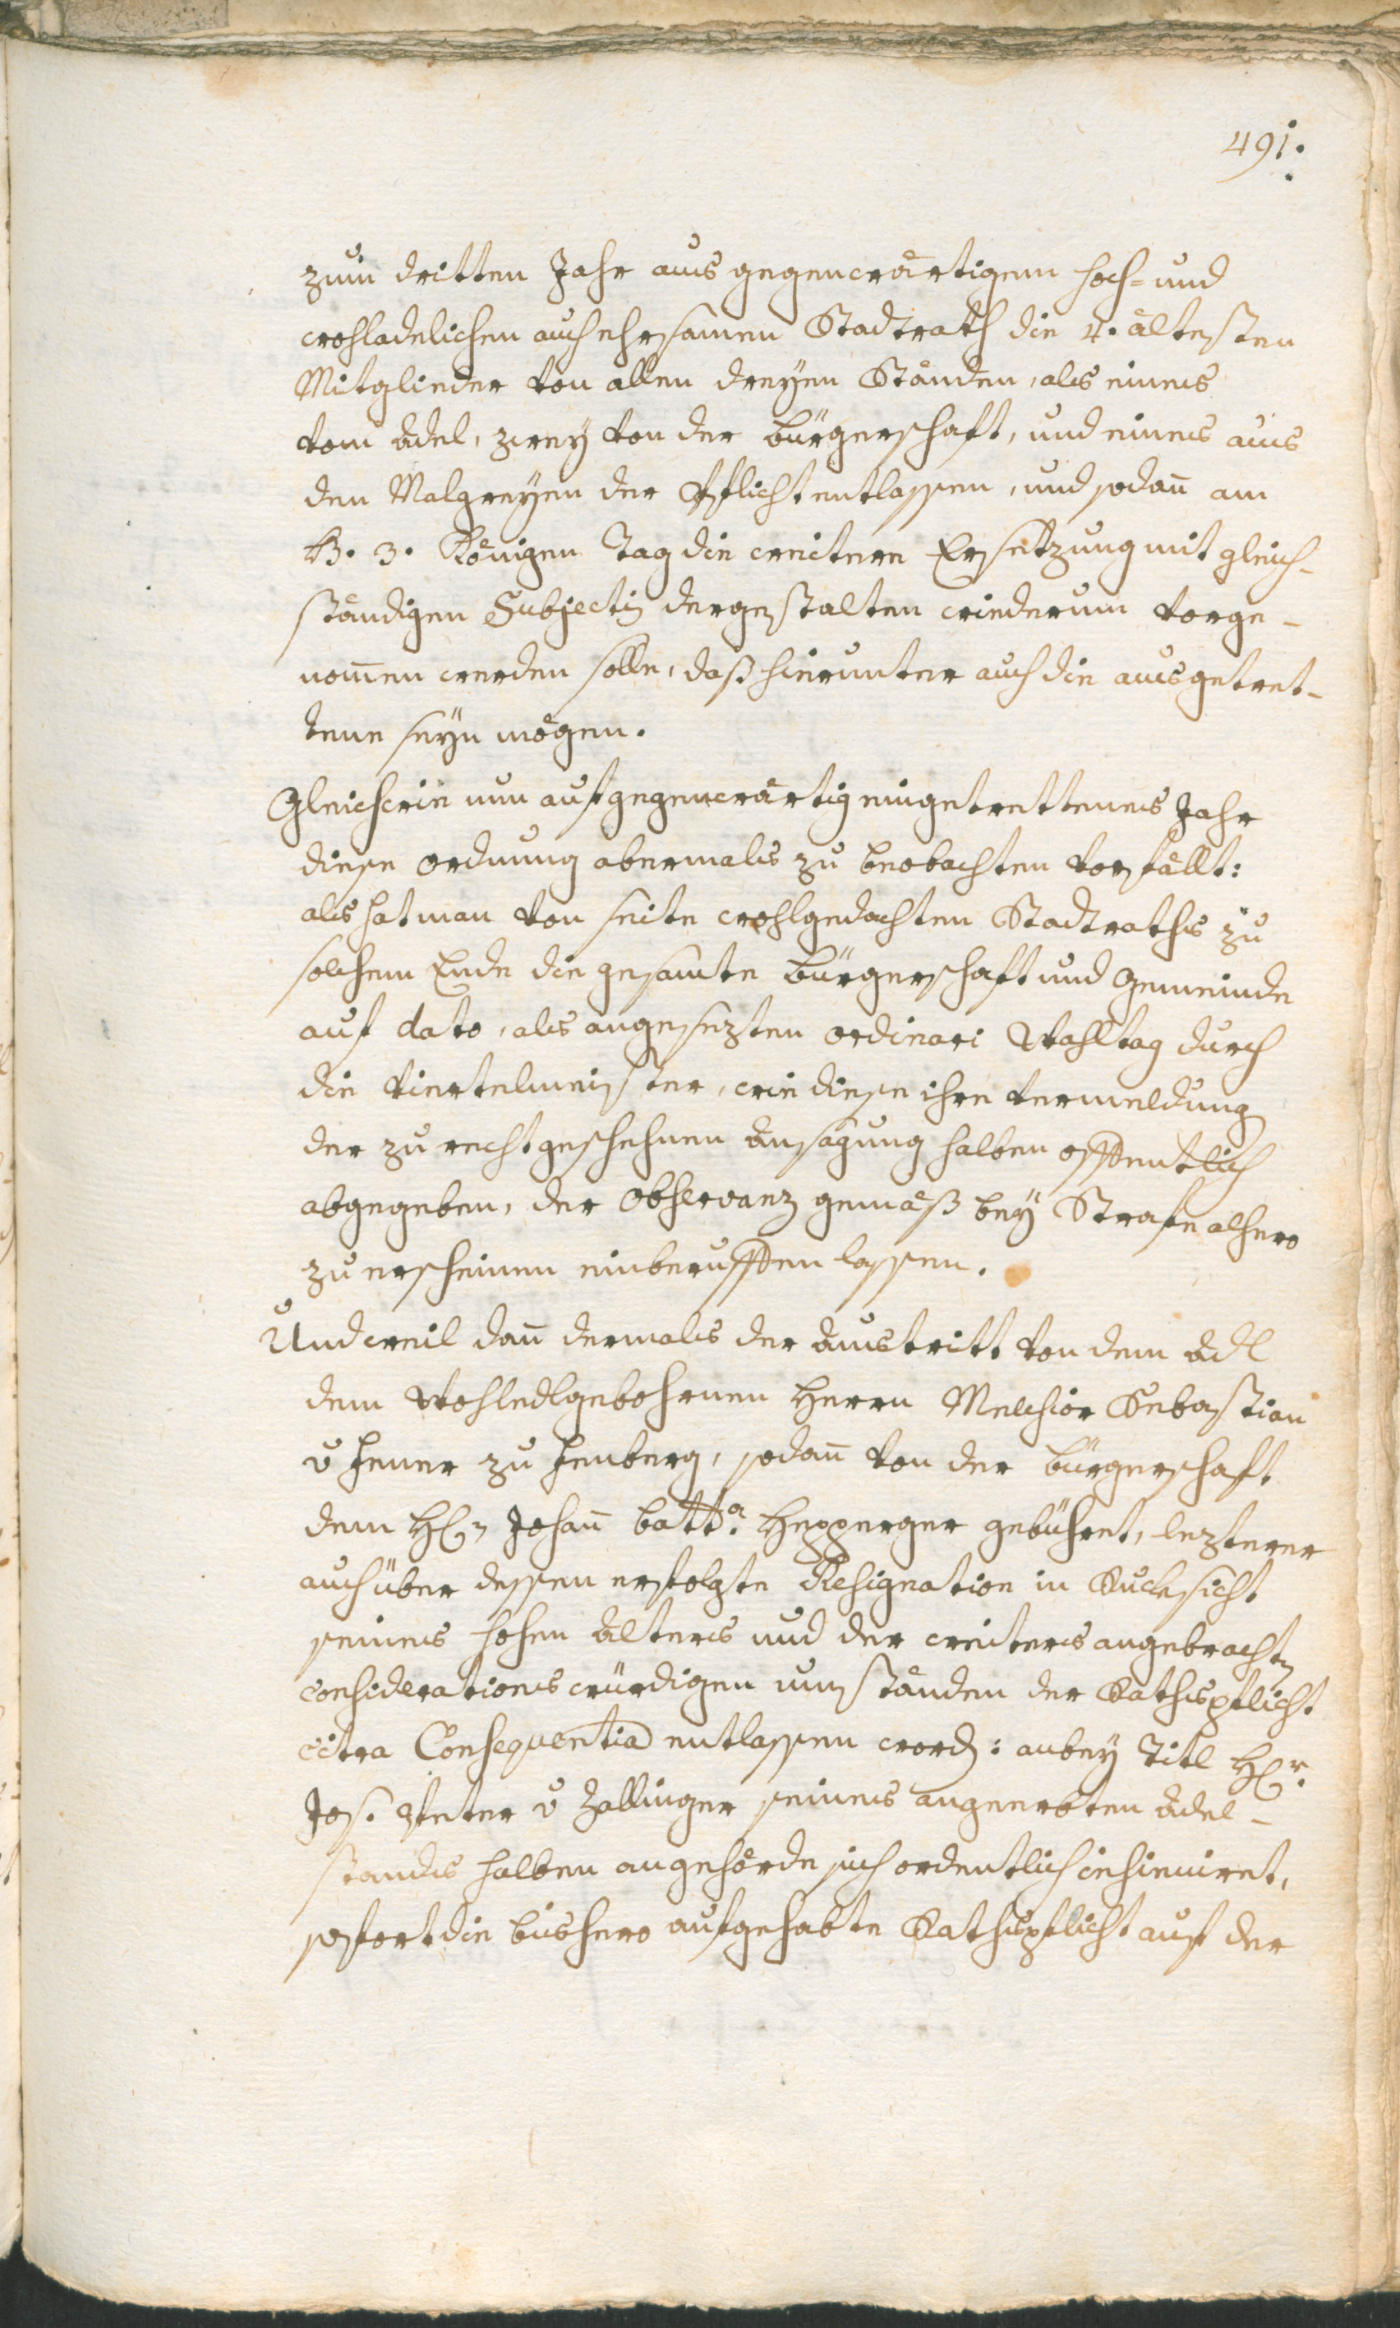 491.
zum dritten Jahr aus gegenwärtigem hoch- und
wohladelichen auch ehrsamen Stadtrath die 4. ältesten
Mitglieder von allen dreyen Ständen, als eines
vom Adel, zwey von der Bürgerschaft, und eines aus
den Malgreyen der Pflicht entlassen, und sodan̄ am
H. 3. Königen Tag die weitere Ersetzung mit gleich-
ständigen Subjectis dergestalten wiederum vorge-
nom̄en werden solle, daß hierunter auch die ausgetret-
tene seyn mögen.
Gleichwie nun auf gegenwärtig eingetrettenes Jahr
diese Ordnung abermals zu beobachten vorfällt:
als hat man von seite wohlgedachten Stadtraths zu
solchem Ende die gesamte Bürgerschaft und Gemeinde
auf dato, als angesezten ordinari Wahltag durch
die Viertelmeister, wie diese ihre Vermeldung
der zu recht geschehenen Ansagung halben offentlich
abgegeben, der Observanz gemäß bey Strafe alhero
zu erscheinen einberuffen lassen.
Und weil dan̄ dermals der Austritt von dem Adl
dem Wohledlgebohrnen Herrn Melchior Sebastian
v Hener zu Henberg, sodan̄ von der Bürgerschaft
dem H: Johan̄ Batta. Hepperger gebühret, lezterer
auch über dessen erfolgte Resignation in Rucksicht
seines hohen Alters und der weiters angebrachten
considerationswürdigen umständen der Rathspflicht
citra Consequentia entlassen word: anbey Titl H:r
Jos. Peter v Zallinger seines angeerbten Adel-
stands halben angehörde sich ordentlich insinuiret,
sofort die bishero aufgehabte Rathspflicht auf der